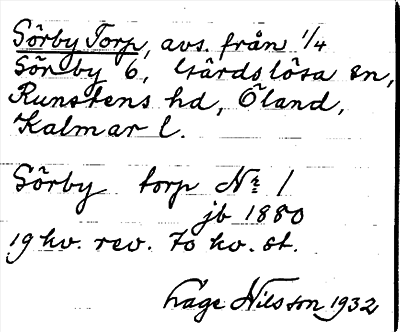 Sörby Torp, avs. från 1/4
Sörby 6, Gärdslösa sn,
Runstens hd, Öland,
Kalmar l.
Sörby torp Nr 1
jb 1880
19 kv. rev. 70 kv. st.
Låge Nilsson 1932